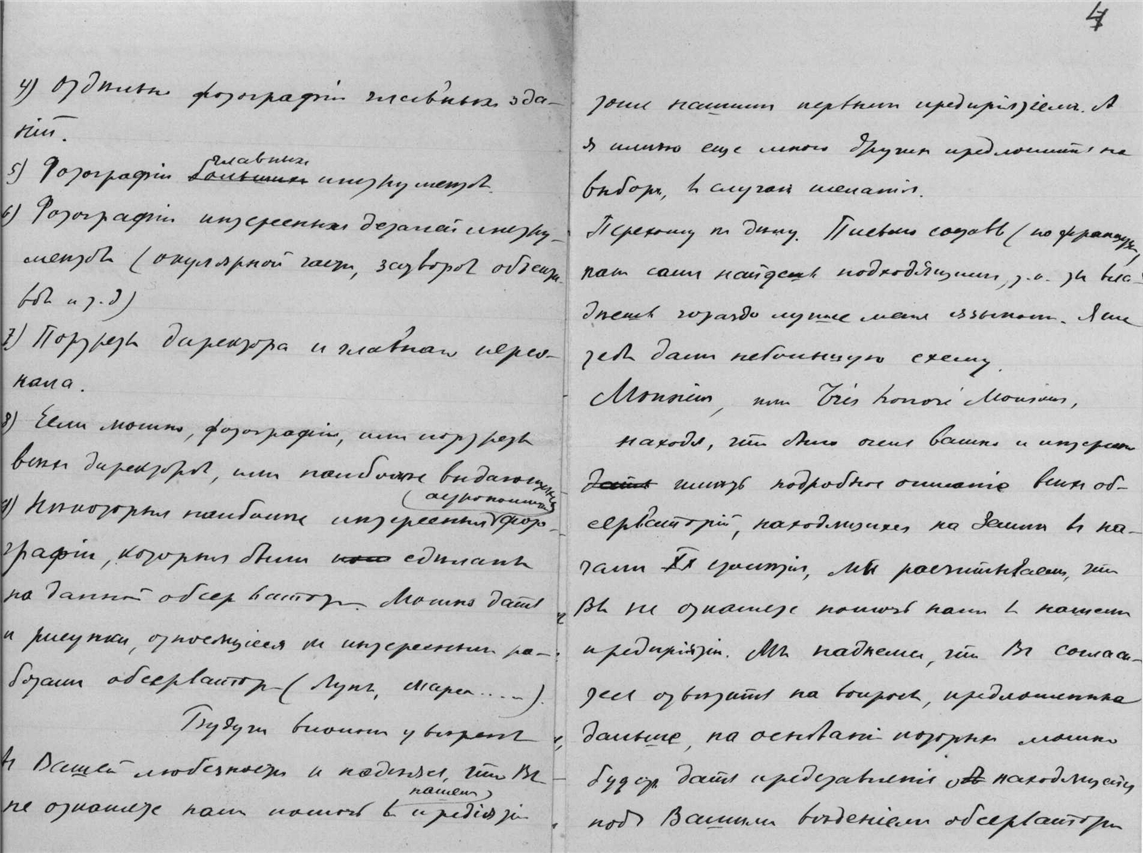 4) Отдѣльно фотографіи главныхъ зда-
ній.
5) Фотографіи большихъ главныхъ инструментовъ.
6) Фотографіи интересныхъ деталей инстру-
ментовъ (окулярной части, затворовъ объекти-
вовъ и т.д)
7) Портретъ директора и главнаго персо-
нала.
8) Если можно, фотографіи, или портреты
всѣхъ директоровъ, или наиболѣе выдающихся
астрономовъ
9) Нѣкоторыя наиболѣе интересныя фото-
графіи, которыя были сдѣланы
на данной обсерваторіи. Можно дать
и рисунки, относящіеся къ интереснымъ ра-
ботамъ обсерваторіи (Луны, Марса.....).
Будучи вполнѣ увѣрены
въ Вашей любезности и надѣясь, что Вы
не откажете намъ помочь въ нашемъ предпріятіи
4
тоже нашимъ первымъ предпріятіемъ. А
я имѣю еще много другихъ предложить на
выборъ, въ случаѣ желанія.
Перехожу къ дѣлу. Письмо составь (по французски)
какъ самъ найдешь подходящимъ, т.к. ты вла-
дѣешь гораздо лучше меня языкомъ. Я же
тебѣ дамъ небольшую схему
Monsieur, или Très honoré Monsieur,
находя, что было очень важно и интересно
дать имѣть подробное описаніе всѣхъ об-
серваторій, находящихся на Земли въ на-
чалѣ XX столѣтія, мы расчитываемъ, что
Вы не откажете помочь намъ въ нашемъ
предпріятіи. Мы надѣемся, что Вы согласи-
тесь отвѣтить на вопросы, предложенные
дальше, на основаніи которыхъ можно
будетъ дать представленіе о находящейся
подъ Вашимъ вѣденіемъ обсерваторіи